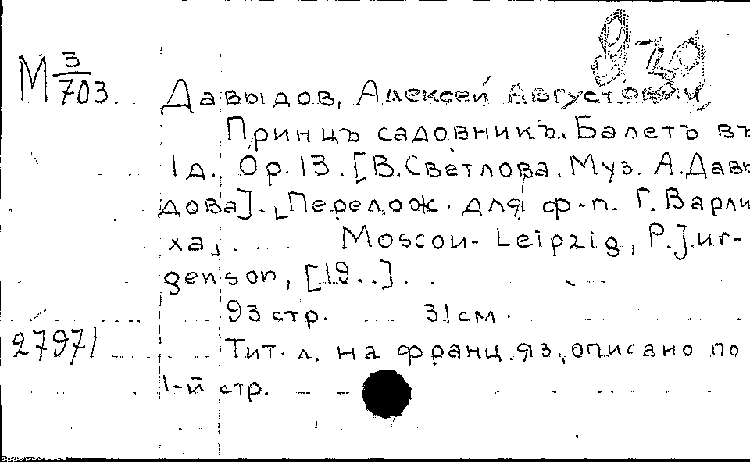 М 3/703
Давыдов, Алексей Августович
Принцъ садовникъ. Балетъ въ
1 д. Op. 13. [В. Светлова. Муз. А. Давы
дова]. [Перелож. для ф-п. Г. Варли
ха].
Moscou-Leipzig, P. Jur-
genson, [19..].
93 стр. 31 см.
27971
Тит. л. на франц. яз., описано по
1-й стр.